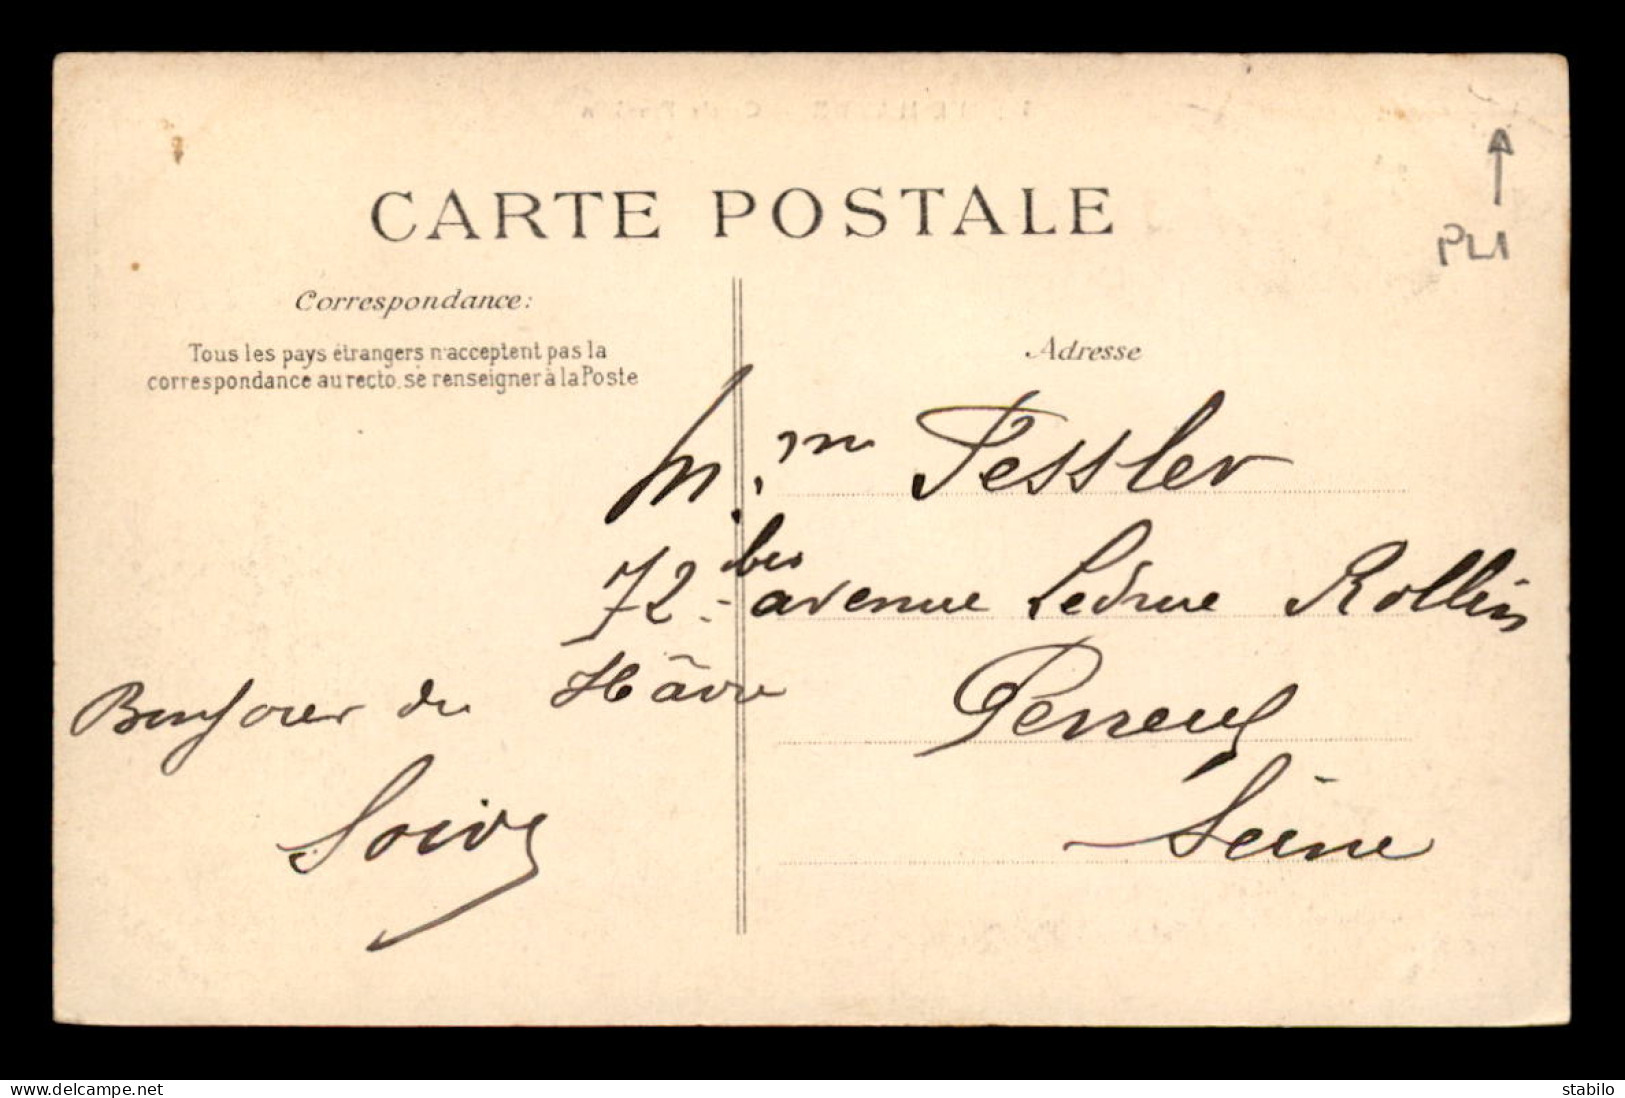 CARTE POSTALE
PLI
Correspondance:
Tous les pays étrangers n'acceptent pas la
correspondance au recto. se renseigner à la Poste
Adresse
M.m Tessler
72 bis avenue Ledrue Rollin
Perreux
Seine
Bonjour du Hâvre
www.delcampe.net
stabilo